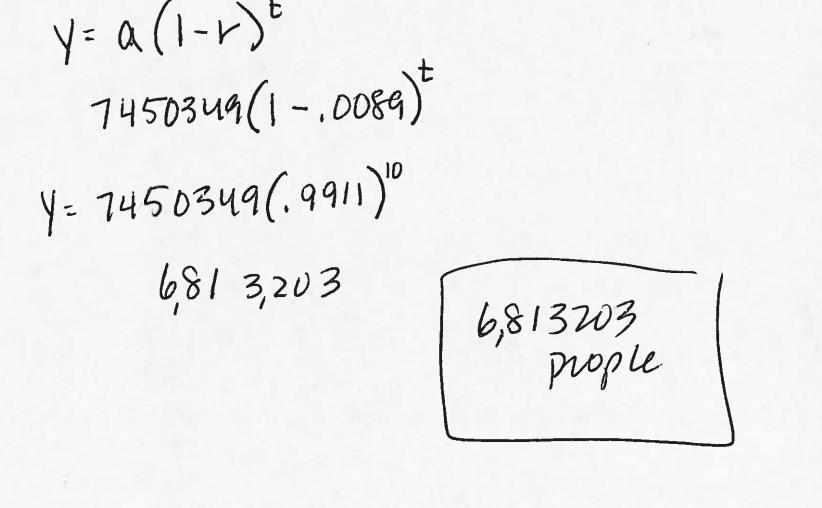 y = a(1-r)^t
7450349(1-.0089)^t
y = 7450349(.9911)^10
6,813,203
6,813203
people